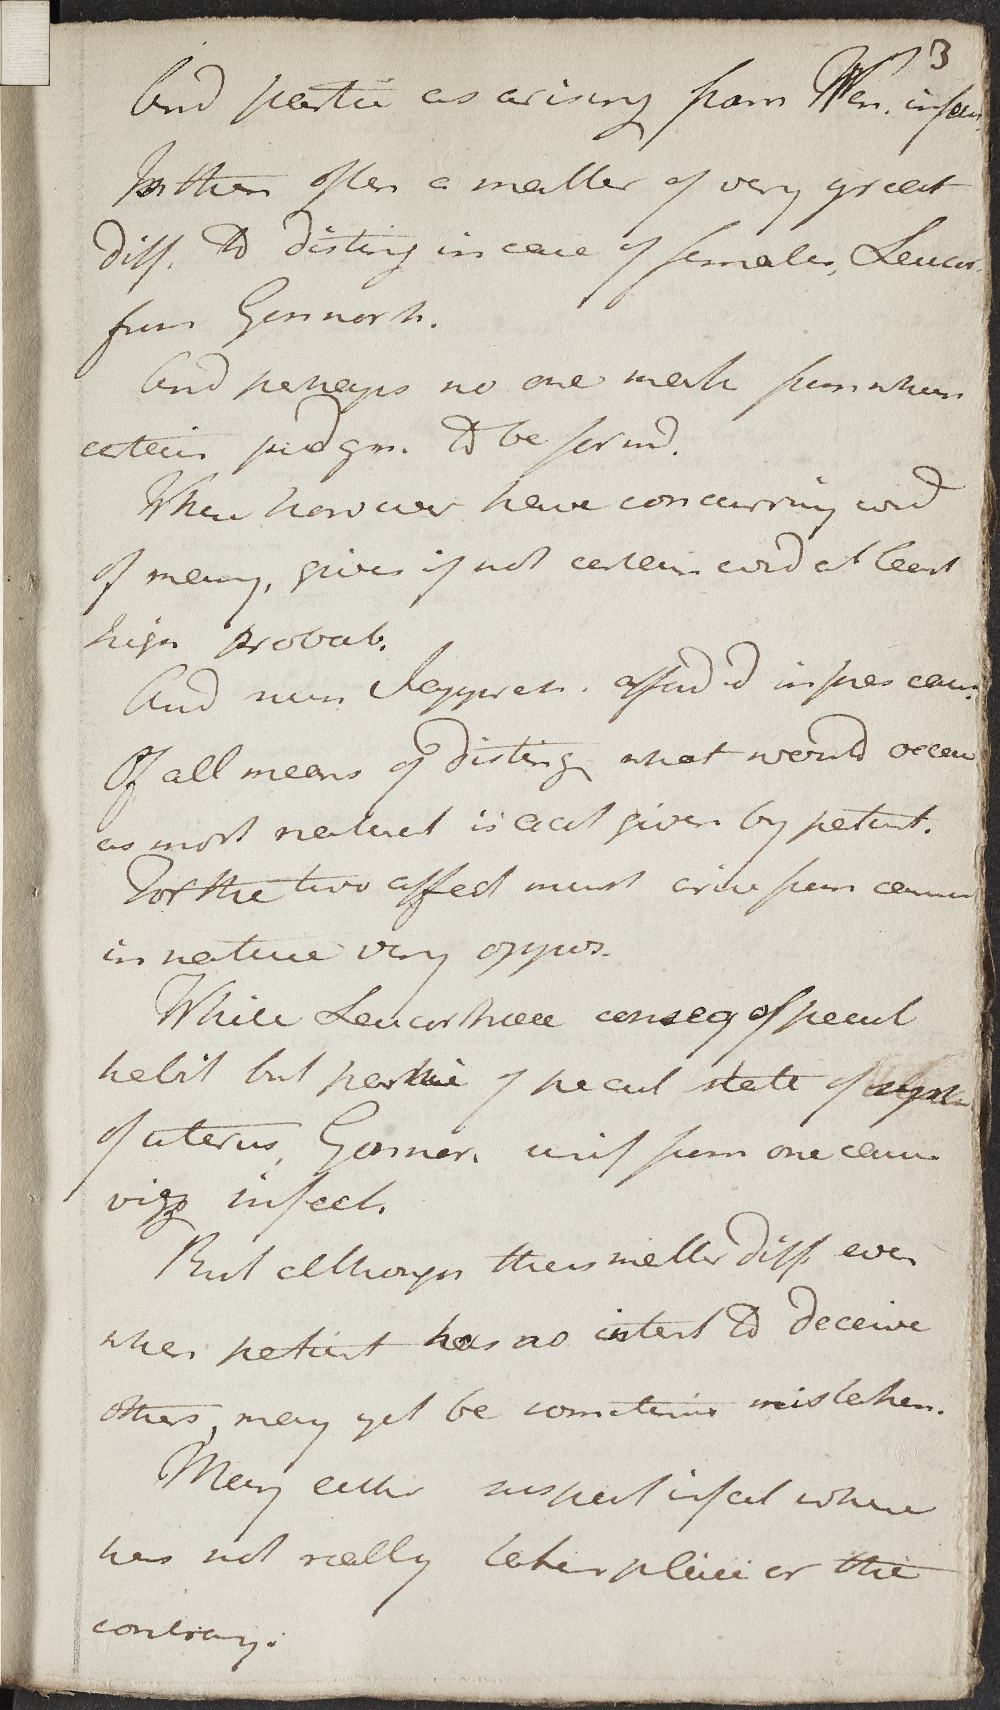 3
And partic as arising from Ven. infec.
In them often a matter of very great
diff. to disting in case of females, Leucor.
from Gonnorh.
And perhaps no one mark from when
certain judgm. to be form'd.
When however have concurring evid
of many, gives if not certain evid at least
high probab.
And num Suppos. afford'd in pres case.
Of all means of disting what would occur
as most natural is acct given by patient.
For the two affect must arise from causes
in nature very oppos.
While Leucorhoea conseq of pecul
habit but partic of pecul state of
of uterus, Gonnor. unif from one cause
viz infect.
But although this matter diff. even
when patient has no intent to deceive
others, may yet be sometimes mistaken.
May either suspect infect where
has not really taken place or the
contrary.